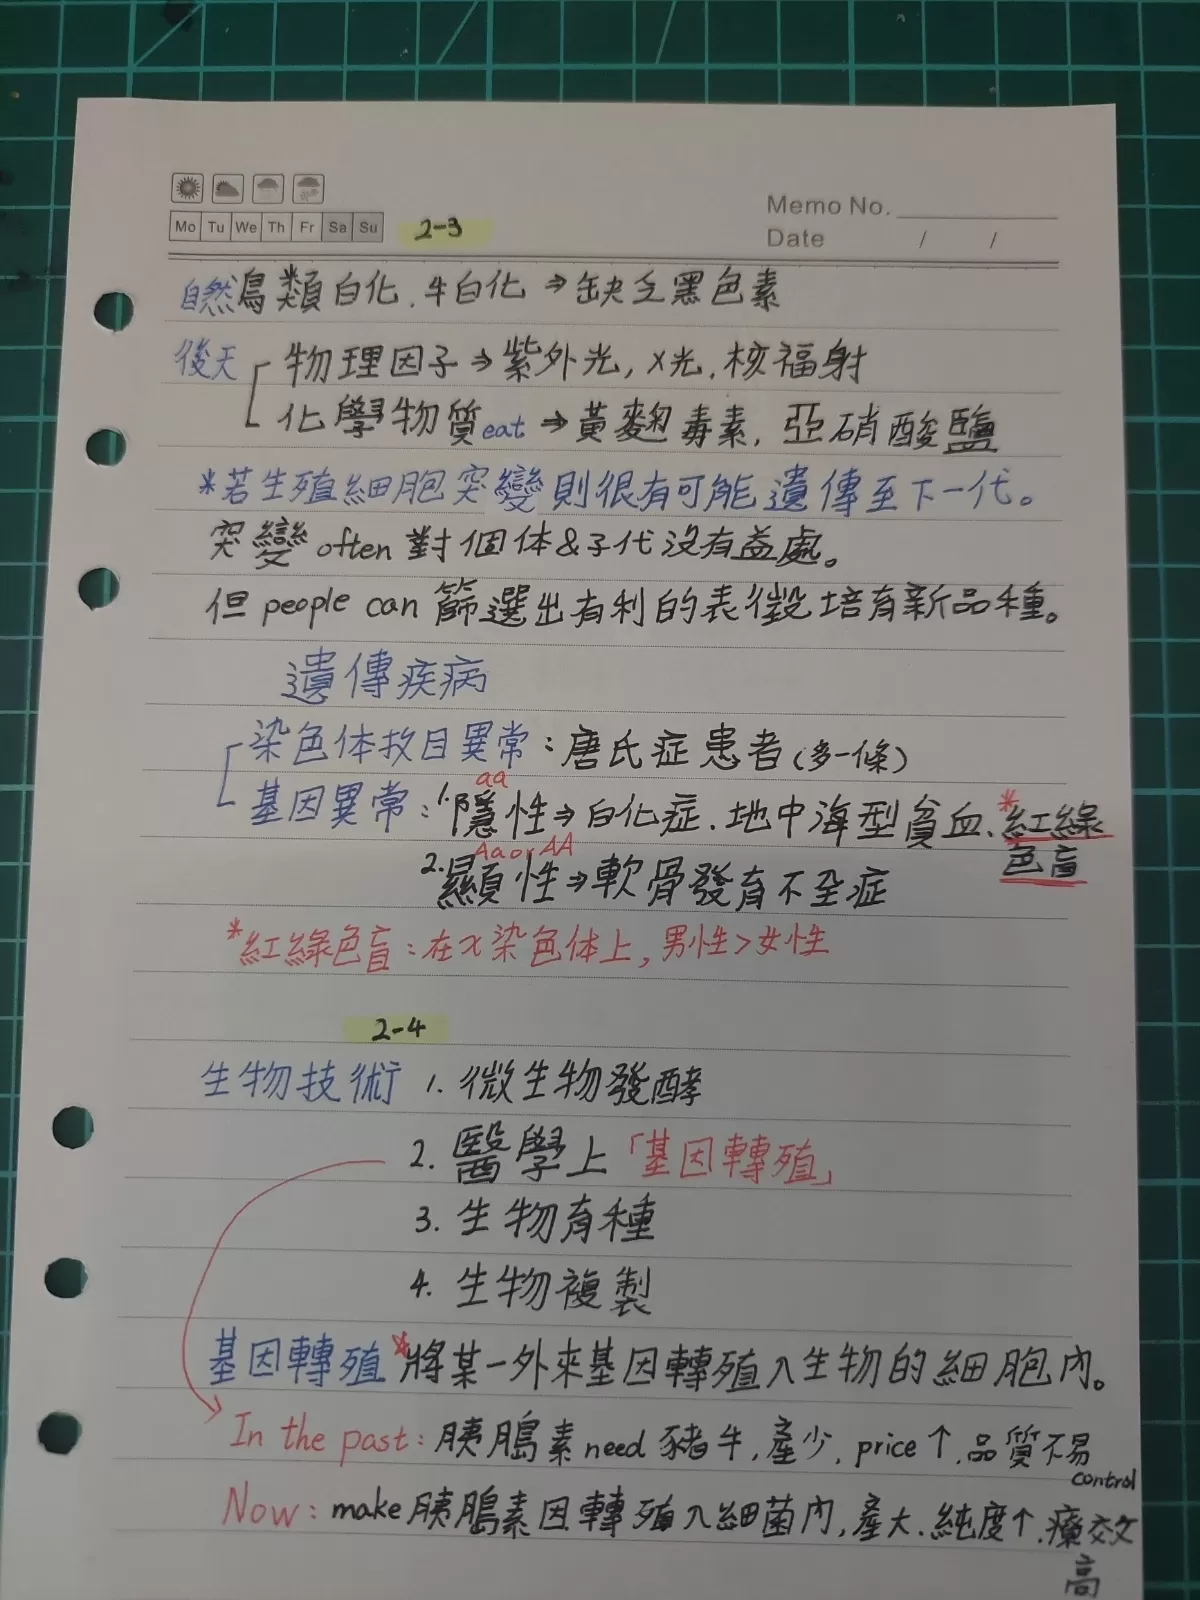 Mo Tu We Th Fr Sa Su
2-3
Memo No.
Date / /
自然鳥類白化、牛白化⇒缺乏黑色素
後天 物理因子⇒紫外光,X光、核福射
化學物質eat⇒黃麴毒素,亞硝酸鹽
*若生殖細胞突變則很有可能遺傳至下一代。
突變 often 對個体&子代沒有益處。
但 people can 篩選出有利的表徵培育新品種。
遺傳疾病
染色体枚目異常:唐氏症患者(多一條)
aa
基因異常:1.隱性⇒白化症、地中海型貧血、*紅綠
色盲
Aa or AA
2.顯性⇒軟骨發育不全症
*紅綠色盲:在X染色体上,男性>女性
2-4
生物技術 1.微生物發酵
2.醫學上「基因轉殖」
3.生物育種
4.生物複製
基因轉殖*將某一外來基因轉殖入生物的細胞內。
In the past:胰島素need豬牛,產少,price↑、品質不易
control
Now:make胰島素因轉殖入細菌內,產大、純度↑、療效
高